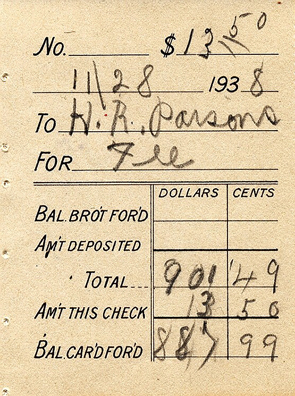 No. $13.50
11/28 1938
To H. R. Parsons
For Fee
DOLLARS CENTS
BAL. BRO'T FOR'D
AM'T DEPOSITED
TOTAL 901 49
AM'T THIS CHECK 13 50
BAL. CAR'D FOR'D 887 99